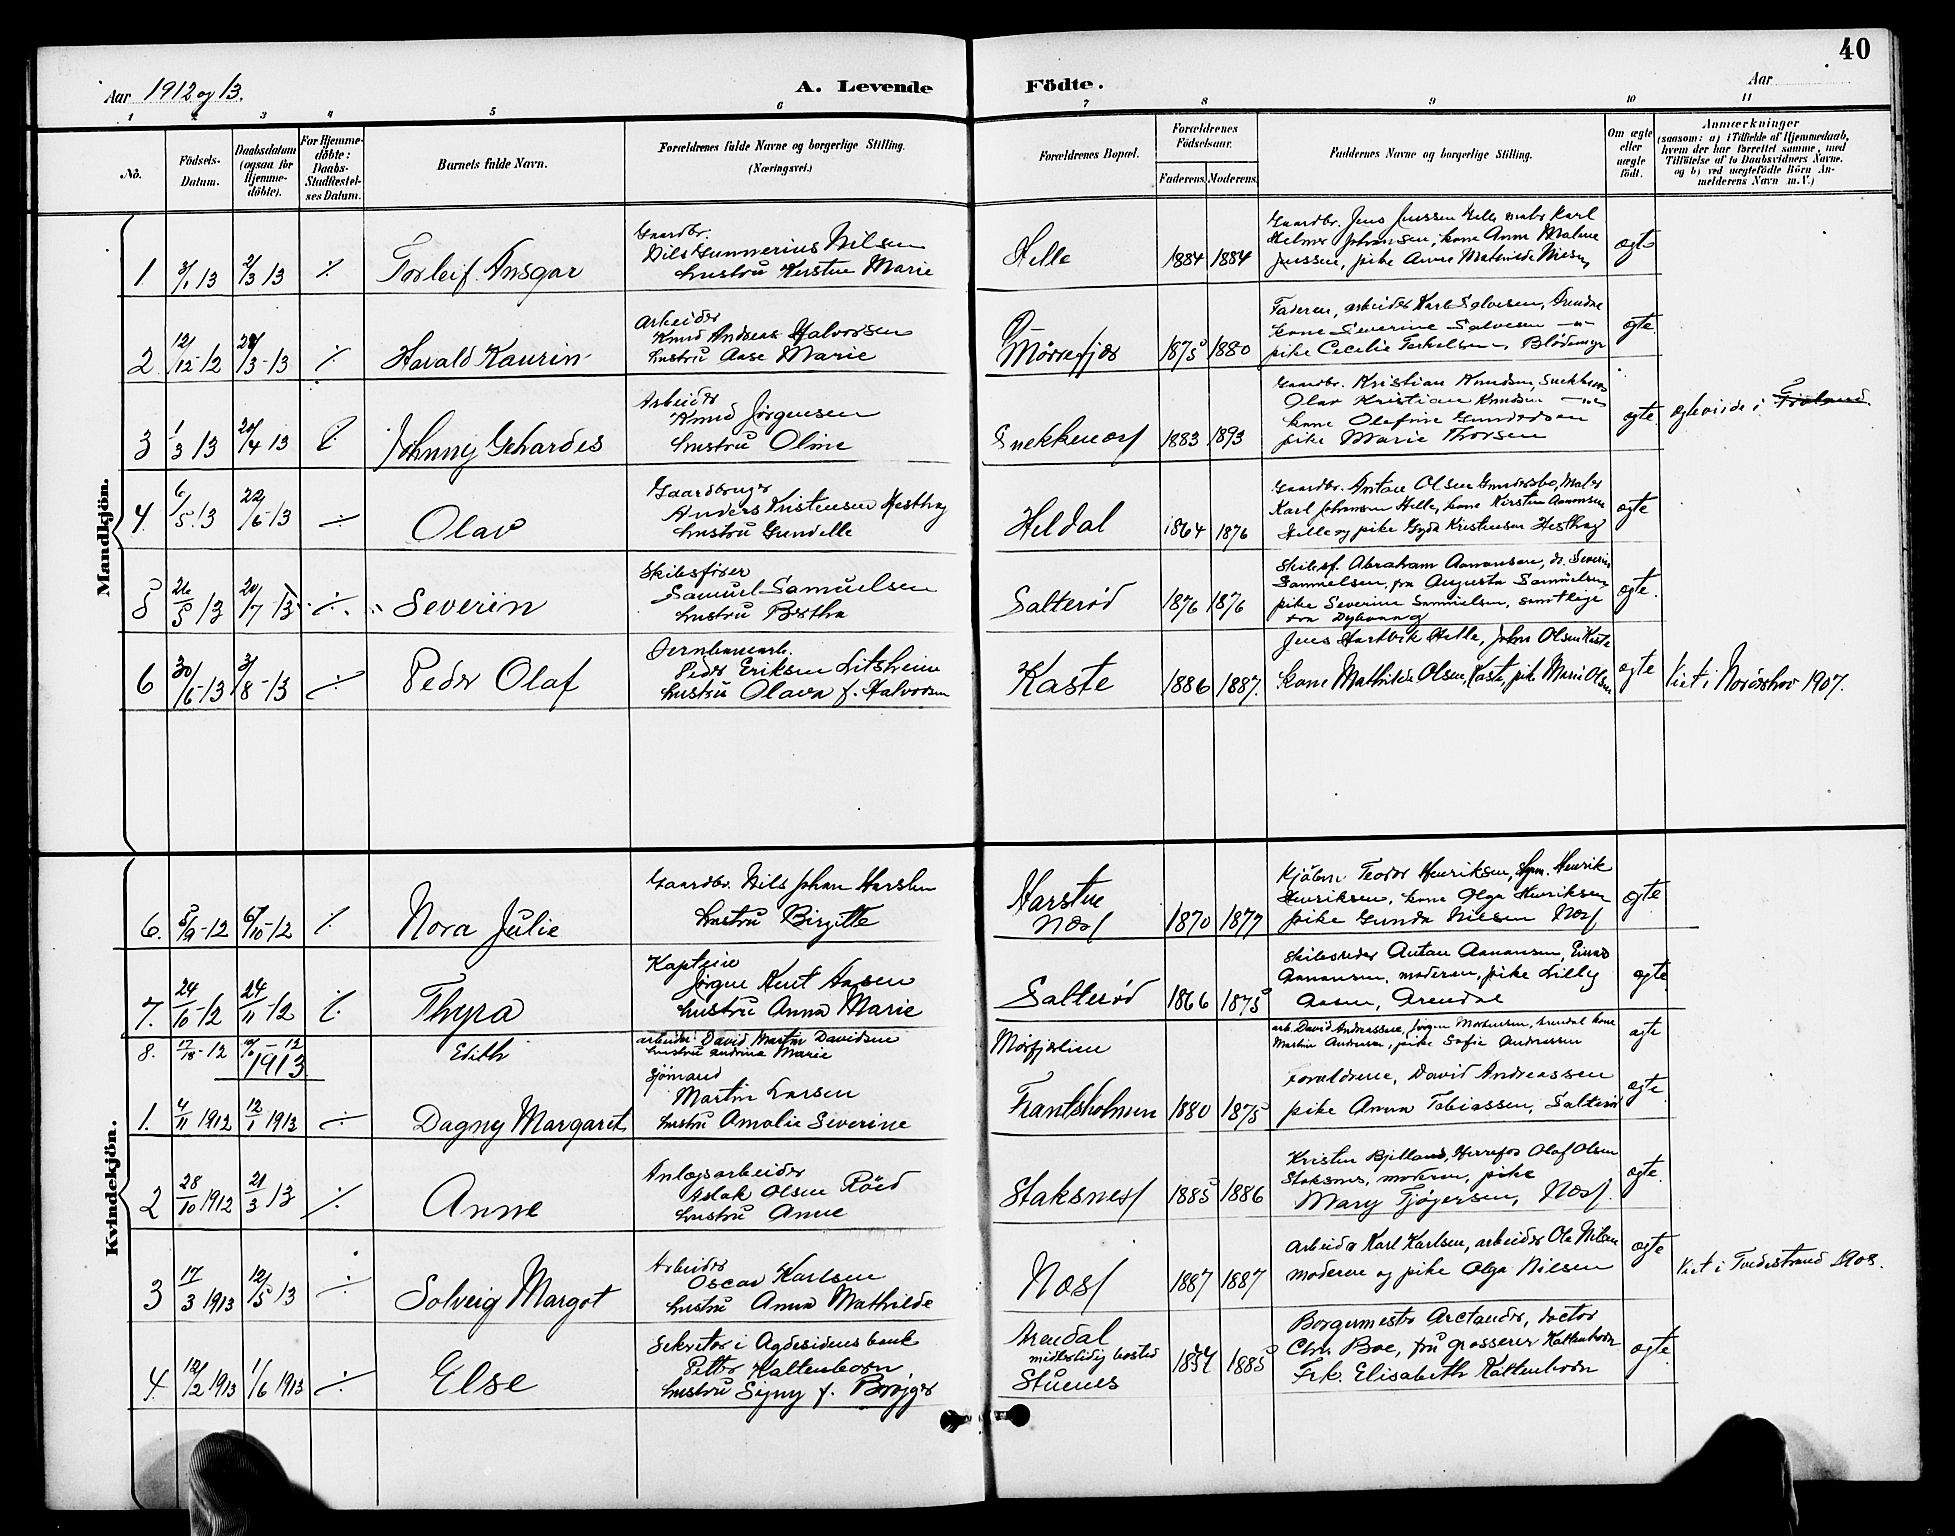 40
Aar 1912 og 13.
A. Levende Födte.
Aar
1 2 3 4 5 6 7 8 9 10 11
No.
Födsels-Datum.
Daabsdatum (ogsaa for Hjemme-döbte).
For Hjemme-döbte: Daabs-Stadfæstel-ses Datum.
Barnets fulde Navn.
Forældrenes fulde Navne og borgerlige Stilling. (Næringsvei.)
Forældrenes Bopæl.
Forældrenes Födselsaar.
Faderens. Moderens.
Faddernes Navne og borgerlige Stilling.
Om ægte eller uægte födt.
Anmærkninger (saasom: a) i Tilfælde af Hjemmedaab, hvem der har forrettet samme, med Tilföielse af to Daabsvidners Navne. og b) ved uægtefödte Börn An-melderens Navn m. V.)
Mandkjön.
1 3/1 13 2/3 13 ./.
Torleif Ansgar
Gaardbr.
Nils Gunnerius Nilsen
hustru Kirstine Marie
Helle 1884 1884
Gaardbr. Jens Jenssen Helle Karl
Helmer Johansen, kone Anne Malene
Jenssen, pike Anne Mathilde
ægte
2 12/12 12 28/3 13 ./.
Harald Kaurin
Arbeider
Knud Andreas Halvorsen
hustru Aase Marie
Mörrefjær 1875 1880
Faderen, arbeider Karl Salvesen,
kone Severine Salvesen -"-
pike Cecelie Terkelsen, Blödemyr
ægte
3 1/3 13 20/4 13 ./.
Johnny Gehardes
Arbeider
Knud Jörgensen
hustru Oline
Snekkenæs 1883 1893
Gaardbr. Kristian Knudsen,
Olav Kristian Knudsen -"-
kone Olefine Gundersen
pike Marie Thorsen
ægte
ægteviede i Froland.
4. 6/5 13 22/6 13 ./.
Olav
Gaardbruger
Anders Kristensen Hesthag
hustru Gundelle
Heldal 1864 1876
Gaardbr. Anton Olsen Gundersbo, Maler
Karl Johansen Helle, kone Kirsten Aanonsen
Helle og pike Gyda Kristensen Hesthag
ægte
5 26/5 13 20/7 13 ./.
Severin
Skibsförer
Samuel Samuelsen
hustru Bertha
Salteröd 1876 1876
Skibsf. Abraham Aanonsen, do. Severin
Samuelsen, fru Augusta Samuelsen
pike Severine Samuelsen, samtlige
fra Dybvaag
ægte.
6 30/6 13 3/8 13 ./.
Peder Olaf
Jernbanearb.
Peder Eriksen Litsheim
hustru Olava f. Halvorsen
Kaste 1886 1887.
Jens Hartvik Helle, John Olsen Kaste
kone Mathilde Olsen, Kaste, pik Marie Olsen
ægte
Viet i Norderhov 1907.
Kvindekjön.
6. 5/9 12 6/10 12 ./.
Nora Julie
Gaardbr. Nils Johan Harsten
hustru Birgitte
Harstue
Næs 1870 1877
Kjöbm. Teodor Henriksen, Henrik
Henriksen, kone Olga Henriksen
pike Gunda Nielsen Næs
ægte
7. 24/10 12 24/11 12 ./.
Thyra
Kaptein
Jörgen Knut Aasen
hustru Anna Marie
Salteröd 1866 1875
Skibsreder Anton Aanonsen, Einar
Aanonsen, moderen, pike Lilly
Aasen, Arendal
ægte
8. 12
Edith
arbeider David Martin Davidsen
hustru Andrine Marie
Mörfjærlien
arb. David Andreassen, Jörgen Mortensen, Arendal kone
Martin Andersen, pike Sofie Andreassen
ægte
1913
1. 4/11 1912 12/1 1913 ./.
Dagny Margaret
Sjömand
Martin Larsen
hustru Amalie Severine
Frantsholmen 1880 1875
Forældrene, David Andreassen
pike Anna Tobiassen, Salteröd
ægte
2 28/10 1912 21/3 13 ./.
Anne
Anlægsarbeider
Aslak Olsen Röed
hustru Anne
Staksnes 1885 1886
Kristen Bjelland, Herrefos Olaf Olsen
Staksnes, moderen, pike
Mary Fjögersen, Næs.
ægte.
3 17/3 1913 12/5 13 ./.
Solveig Margot
Arbeider
Oscar Karlsen
hustru Anna Mathilde
Næs 1887 1887
Arbeider Karl Karlsen, arbeider Ole Nilsen
moderen og pike Olga Nielsen
ægte
Viet i Tvedestrand 1908.
4. 12/2 1913 1/6 1913 ./.
Else
Sekretær i Agdesidens bank
Petter Kaltenborn
hustru Signy f. Bröjger
Arendal
midlertidig bosted
Stuenes 1885
Borgermester Arctander, doctor
Chr. Boe, fru grosserer Kaltenborn
Frk. Elisabeth Kaltenborn
ægte.